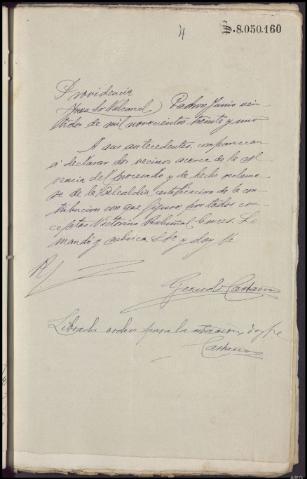 4
S-8.050.160
Providencia
Padron Junio vein
tidos de mil novecientos treinta y uno
A sus antecedentes, comparezcan
a declarar dos vecinos acerca de la sol
vencia del procesado y de hecho reclame
se de la Alcaldia certificacion de la con
tribucion con que figura por todos con
ceptos Victorino
mando y rubrica S.Sª y doy fe
Gerardo
Librada orden para la citacion doy fe